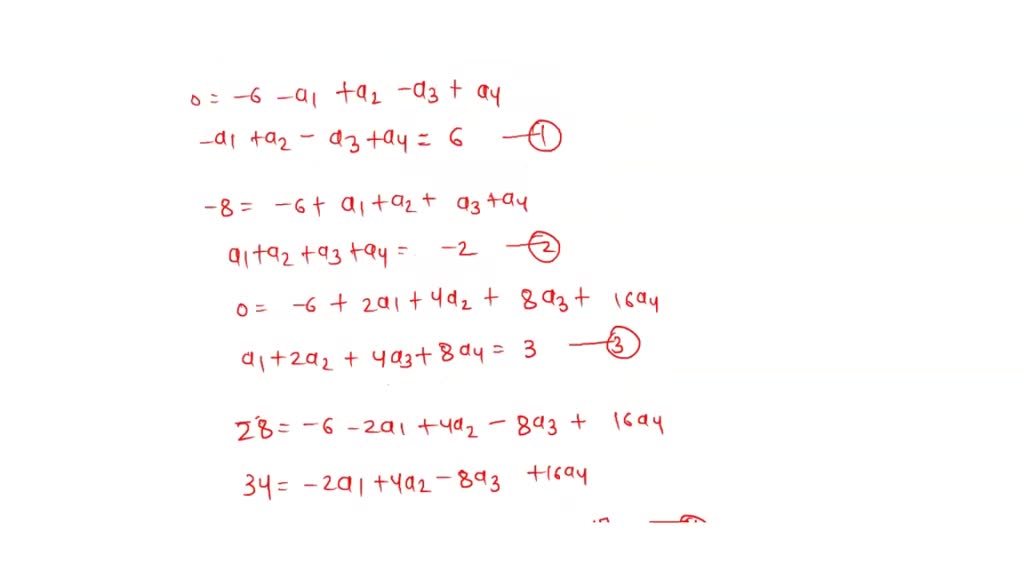 0 = -6 -a1 +a2 -a3 + a4
-a1 +a2 - a3 +a4 = 6 —①
-8 = -6 + a1 +a2 + a3 +a4
a1 +a2 +a3 +a4 = -2 —②
0 = -6 + 2a1 + 4a2 + 8a3 + 16a4
a1 +2a2 + 4a3 + 8a4 = 3 —③
28 = -6 -2a1 +4a2 - 8a3 + 16a4
34 = -2a1 +4a2 - 8a3 +16a4